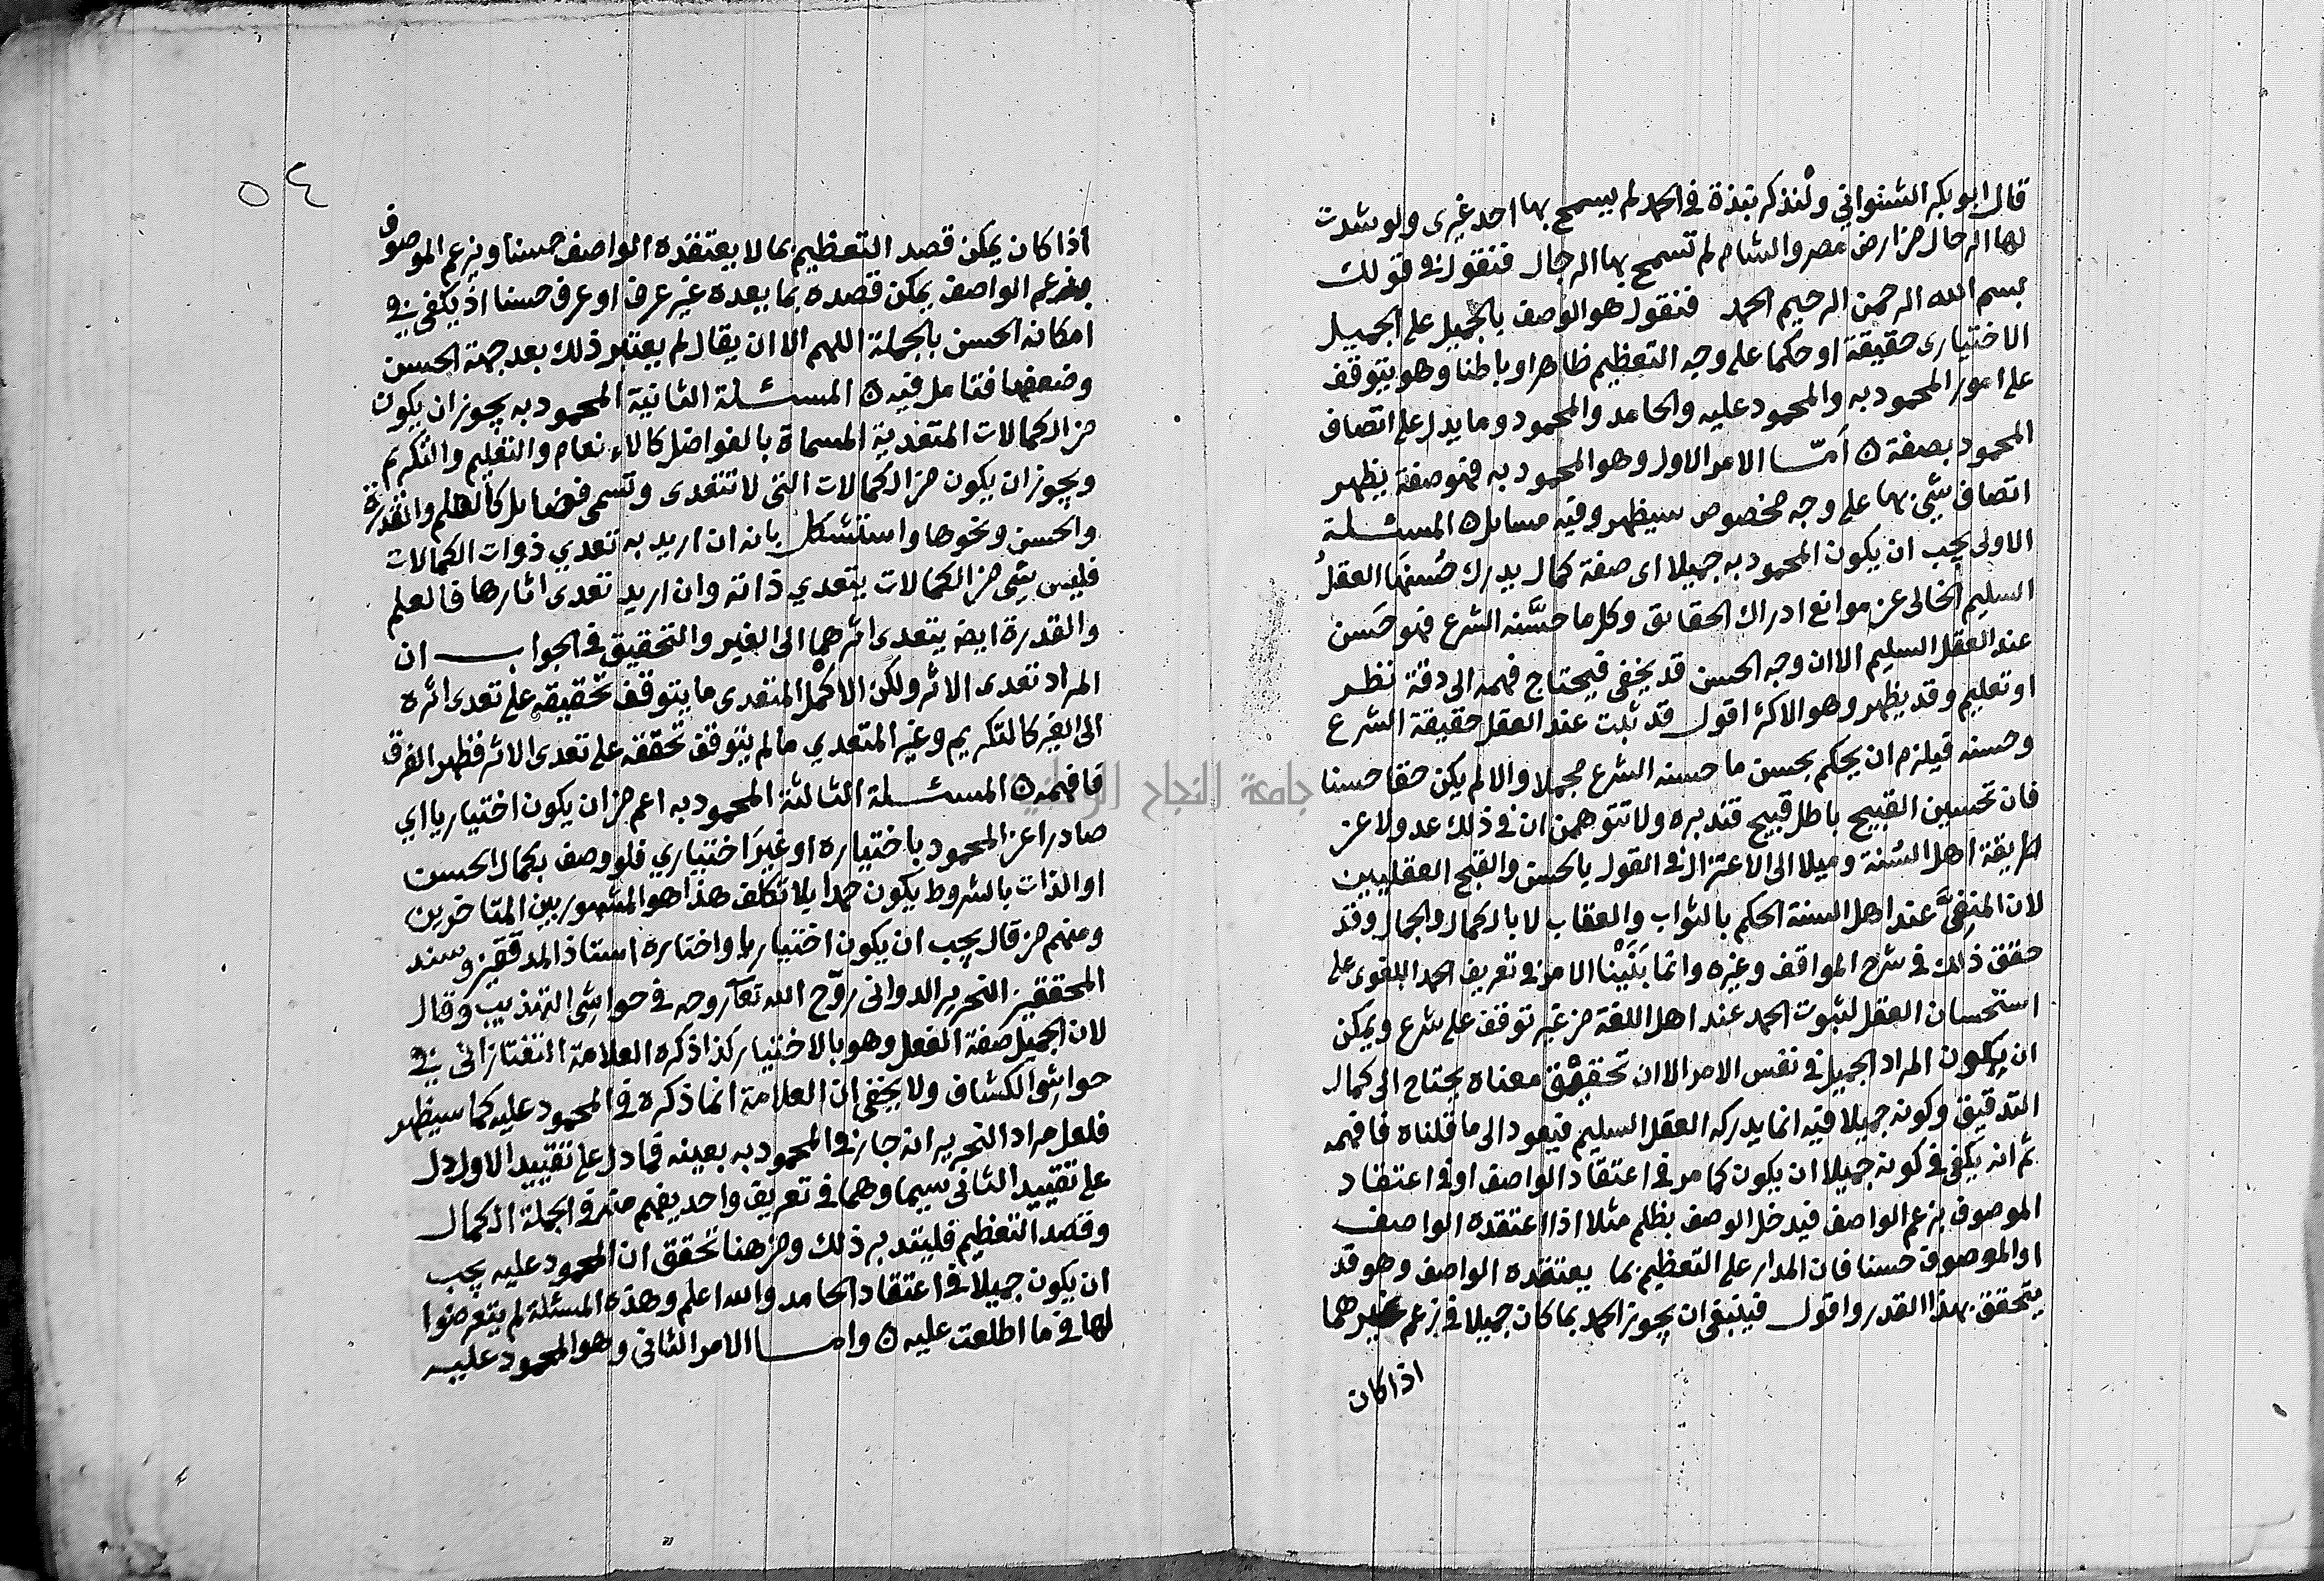 قال ابو بكر الشنواني ولنذكر نبذة في الحمد لم يسمح بها احد غيرى ولو شدت
لها الرحال من ارض مصر والشام لم تسمح بها الرجال فنقول في قولك
بسم الله الرحمن الرحيم الحمد فنقول هو الوصف بالجميل على الجميل
الاختيارى حقيقة او حكما على وجه التعظيم ظاهرا وباطنا وهو يتوقف
على امور المحمود به والمحمود عليه والحامد والمحمود وما يدل على اتصاف
المحمود بصفة ه أمّا الامر الاول وهو المحمود به فهو صفة يظهر
اتصاف شئ بها على وجه مخصوص سيظهر وفيه مسايل ه المسئلة
الاولى يجب ان يكون المحمود به جميلا اى صفة كمال يدرك حُسنَها العقلُ
السليم الخالى عن موانع ادراك الحقائق وكل ما حسَّنه الشرع فهو حَسن
عند العقل السليم الا ان وجه الحسن قد يخفى فيحتاج فهمه الى دقة نظر
او تعليم وقد يظهر وهو الاكثر اقول قد ثبت عند العقل حقيقة الشرع
وحسنه فيلزم ان يحكم بحسن ما حسنه الشرع مجملا والا لم يكن حقا حسنا
فان تحسين القبيح باطل قبيح فتدبره ولا تتوهمن ان في ذلك عدولا عن
طريقة اهل السنة وميلا الى الاعتزال في القول بالحسن والقبح العقليين
لان المنفِىَّ عند اهل السنة الحكم بالثواب والعقاب لا بالكمال والجمال وقد
حقق ذلك في شرح المواقف وغيره وانما بَنَيْنا الامر في تعريف الحمد اللغوى على
استحسان العقل لثبوت الحمد عند اهل اللغة من غير توقف على شرع ويمكن
ان يكون المراد الجميل في نفس الامر الا ان تحقيق معناه يحتاج الى كمال
التدقيق وكونه جميلا فيه انما يدركه العقل السليم فيعود الى ما قلناه فافهمه
ثم انه يكفى في كونه جميلا ان يكون كما مر في اعتقاد الواصف او في اعتقاد
الموصوف بزعم الواصف فيدخل الوصف بظلم مثلا اذا اعتقده الواصف
او الموصوف حسنا فان المدار على التعظيم بما يعتقده الواصف وهو قد
يتحقق بهذا القدر واقول فينبغى ان يجوز الحمد بما كان جميلا في زعم غيرهما
اذا كان
٥٤
اذا كان يمكن قصد التعظيم بما لا يعتقده الواصف حسنا ويزعم الموصوف
بزعم الواصف يمكن قصده بما يعده غير عرف او عرف حسنا اذ يكفى في
امكانه الحسن بالجملة اللهم الا ان يقال لم يعتبر ذلك بعد جهة الحسن
وضعفها فتامل فيه ه المسئلة الثانية المحمود به يجوز ان يكون
من الكمالات المتعدية المسماة بالفواضل كالاءنعام والتعليم والتكريم
ويجوز ان يكون من الكمالات التى لا تتعدى وتسمى فضايل كالعلم والقدرة
والحسن ونحوها واستشكل بانه ان اريد به تعدي ذوات الكمالات
فليس شئ من الكمالات يتعدي ذاته وان اريد تعدى اثارها فالعلم
والقدرة ايضا يتعدى اثرهما الى الغير والتحقيق في الجواب ان
المراد تعدى الاثر ولكن الاكمل المتعدى ما يتوقف تحقيقه على تعدى اثره
الى الغير كالتكريم وغير المتعدي ما لم يتوقف تحققه على تعدى الاثر فظهر الفرق
فافهمه ه المسئلة الثالثة المحمود به اعم من ان يكون اختياريا اي
صادرا عن المحمود باختياره او غيرَ اختياري فلو وصف بكمال الحسن
او الذات بالشروط يكون حمدا بلا تكلف هذا هو المشهور بين المتاخرين
ومنهم من قال يجب ان يكون اختياريا واختاره استاذ المدققين وسند
المحققين النحرير الدوانى روّح الله تعآ روحه في حواشى التهذيب وقال
لان الجميل صفة الفعل وهو بالاختيار كذا ذكره العلامة التفتازانى في
حواشى الكشاف ولا يخفى ان العلامة انما ذكره في المحمود عليه كما سيظهر
فلعل مراد النحرير انه جار في المحمود به بعينه فما دل على تقييد الاول دل
على تقييد الثانى سيما وهما في تعريف واحد يفهم منه في الجملة الكمال
وقصد التعظيم فليتدبر ذلك ومن هنا تحقق ان المحمود عليه يجب
ان يكون جميلا في اعتقاد الحامد والله اعلم وهذه المسئلة لم يتعرضوا
لها في ما اطلعت عليه ه واما الامر الثانى وهو المحمود عليه
جامعة النجاح الوطنية